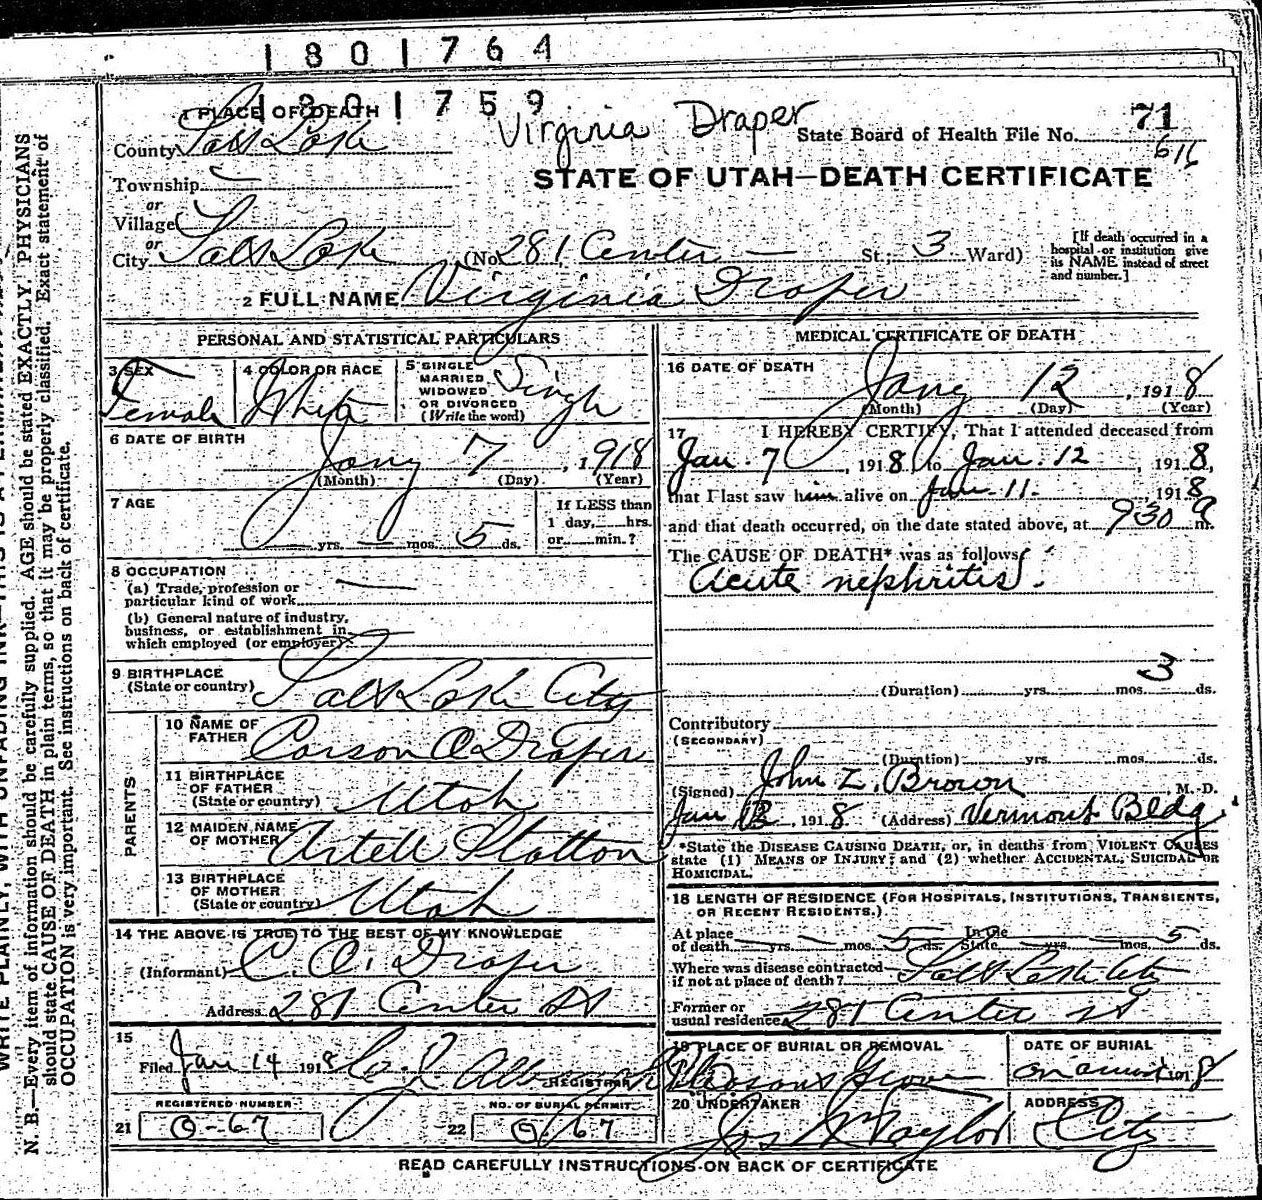 1801764
1801759
1 PLACE OF DEATH
Virginia Draper
State Board of Health File No. 71
616
County Salt Lake
STATE OF UTAH—DEATH CERTIFICATE
Township
or
Village
or
City Salt Lake (No. 281 Center — St.; 3 Ward)
[If death occurred in a
hospital or institution give
its NAME instead of street
and number.]
2 FULL NAME Virginia Draper
PERSONAL AND STATISTICAL PARTICULARS
3 SEX
Female
4 COLOR OR RACE
White
5 SINGLE
MARRIED
WIDOWED
OR DIVORCED
(Write the word)
Single
6 DATE OF BIRTH
Jany 7, 1918
(Month) (Day) (Year)
7 AGE
yrs. mos. 5 ds.
If LESS than
1 day, hrs.
or min.?
8 OCCUPATION
(a) Trade, profession or
particular kind of work
(b) General nature of industry,
business, or establishment in
which employed (or employer)
9 BIRTHPLACE
(State or country) Salt Lake City
PARENTS
10 NAME OF
FATHER Carson O Draper
11 BIRTHPLACE
OF FATHER
(State or country) Utah
12 MAIDEN NAME
OF MOTHER Artell Statton
13 BIRTHPLACE
OF MOTHER
(State or country) Utah
14 THE ABOVE IS TRUE TO THE BEST OF MY KNOWLEDGE
(Informant) C. O. Draper
Address 281 Center St
15
Filed Jan 14 1918
REGISTRAR
REGISTERED NUMBER
21 0-67
NO. OF BURIAL PERMIT
22 0/67
MEDICAL CERTIFICATE OF DEATH
16 DATE OF DEATH
Jany 12, 1918
(Month) (Day) (Year)
17 I HEREBY CERTIFY, That I attended deceased from
Jan. 7, 1918, to Jan. 12, 1918,
that I last saw him alive on Jan. 11, 1918
and that death occurred, on the date stated above, at 930 a m.
The CAUSE OF DEATH* was as follows:
Acute nephritis.
(Duration) yrs. mos. 3 ds.
Contributory
(SECONDARY)
(Duration) yrs. mos. ds.
(Signed) John Z. Brown M. D.
Jan 12, 1918 (Address) Vermont Bldg.
*State the DISEASE CAUSING DEATH, or, in deaths from VIOLENT CAUSES
state (1) MEANS OF INJURY; and (2) whether ACCIDENTAL, SUICIDAL OR
HOMICIDAL.
18 LENGTH OF RESIDENCE (FOR HOSPITALS, INSTITUTIONS, TRANSIENTS,
OR RECENT RESIDENTS.)
At place In the
of death — yrs. — mos. 5 ds. State — yrs. — mos. 5 ds.
Where was disease contracted
if not at place of death? Salt Lake City
Former or
usual residence 281 Center St
19 PLACE OF BURIAL OR REMOVAL
Pleasant Grove
DATE OF BURIAL
191 8
20 UNDERTAKER
Jos Taylor
ADDRESS
City
READ CAREFULLY INSTRUCTIONS ON BACK OF CERTIFICATE
N. B.—Every item of information should be carefully supplied. AGE should be stated EXACTLY. PHYSICIANS
should state CAUSE OF DEATH in plain terms, so that it may be properly classified. Exact statement of
OCCUPATION is very important. See instructions on back of certificate.